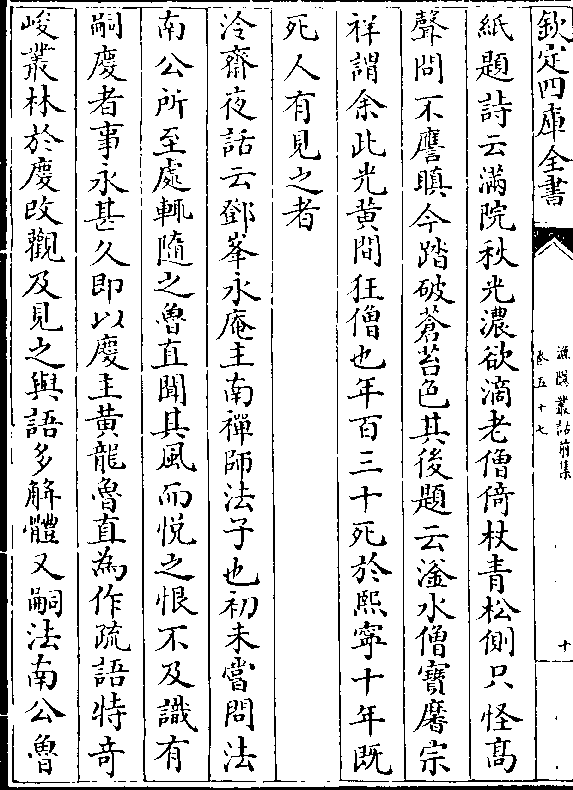 欽定四庫全書
漁隱叢話前集
卷五十七
十
紙題詩云滿院秋光濃欲滴老僧倚杖青松側只怪高
聲問不譍瞋今踏破蒼苔色其後題云滏水僧寶麐宗
祥謂余此光黃間狂僧也年百三十死於熙寧十年既
死人有見之者
冷齋夜話云鄧峯永庵主南禪師法子也初未嘗問法
南公所至處輒隨之魯直聞其風而悦之恨不及識有
嗣慶者事永甚久即以慶主黃龍魯直為作疏語特奇
峻叢林於慶改觀及見之與語多解體又嗣法南公魯